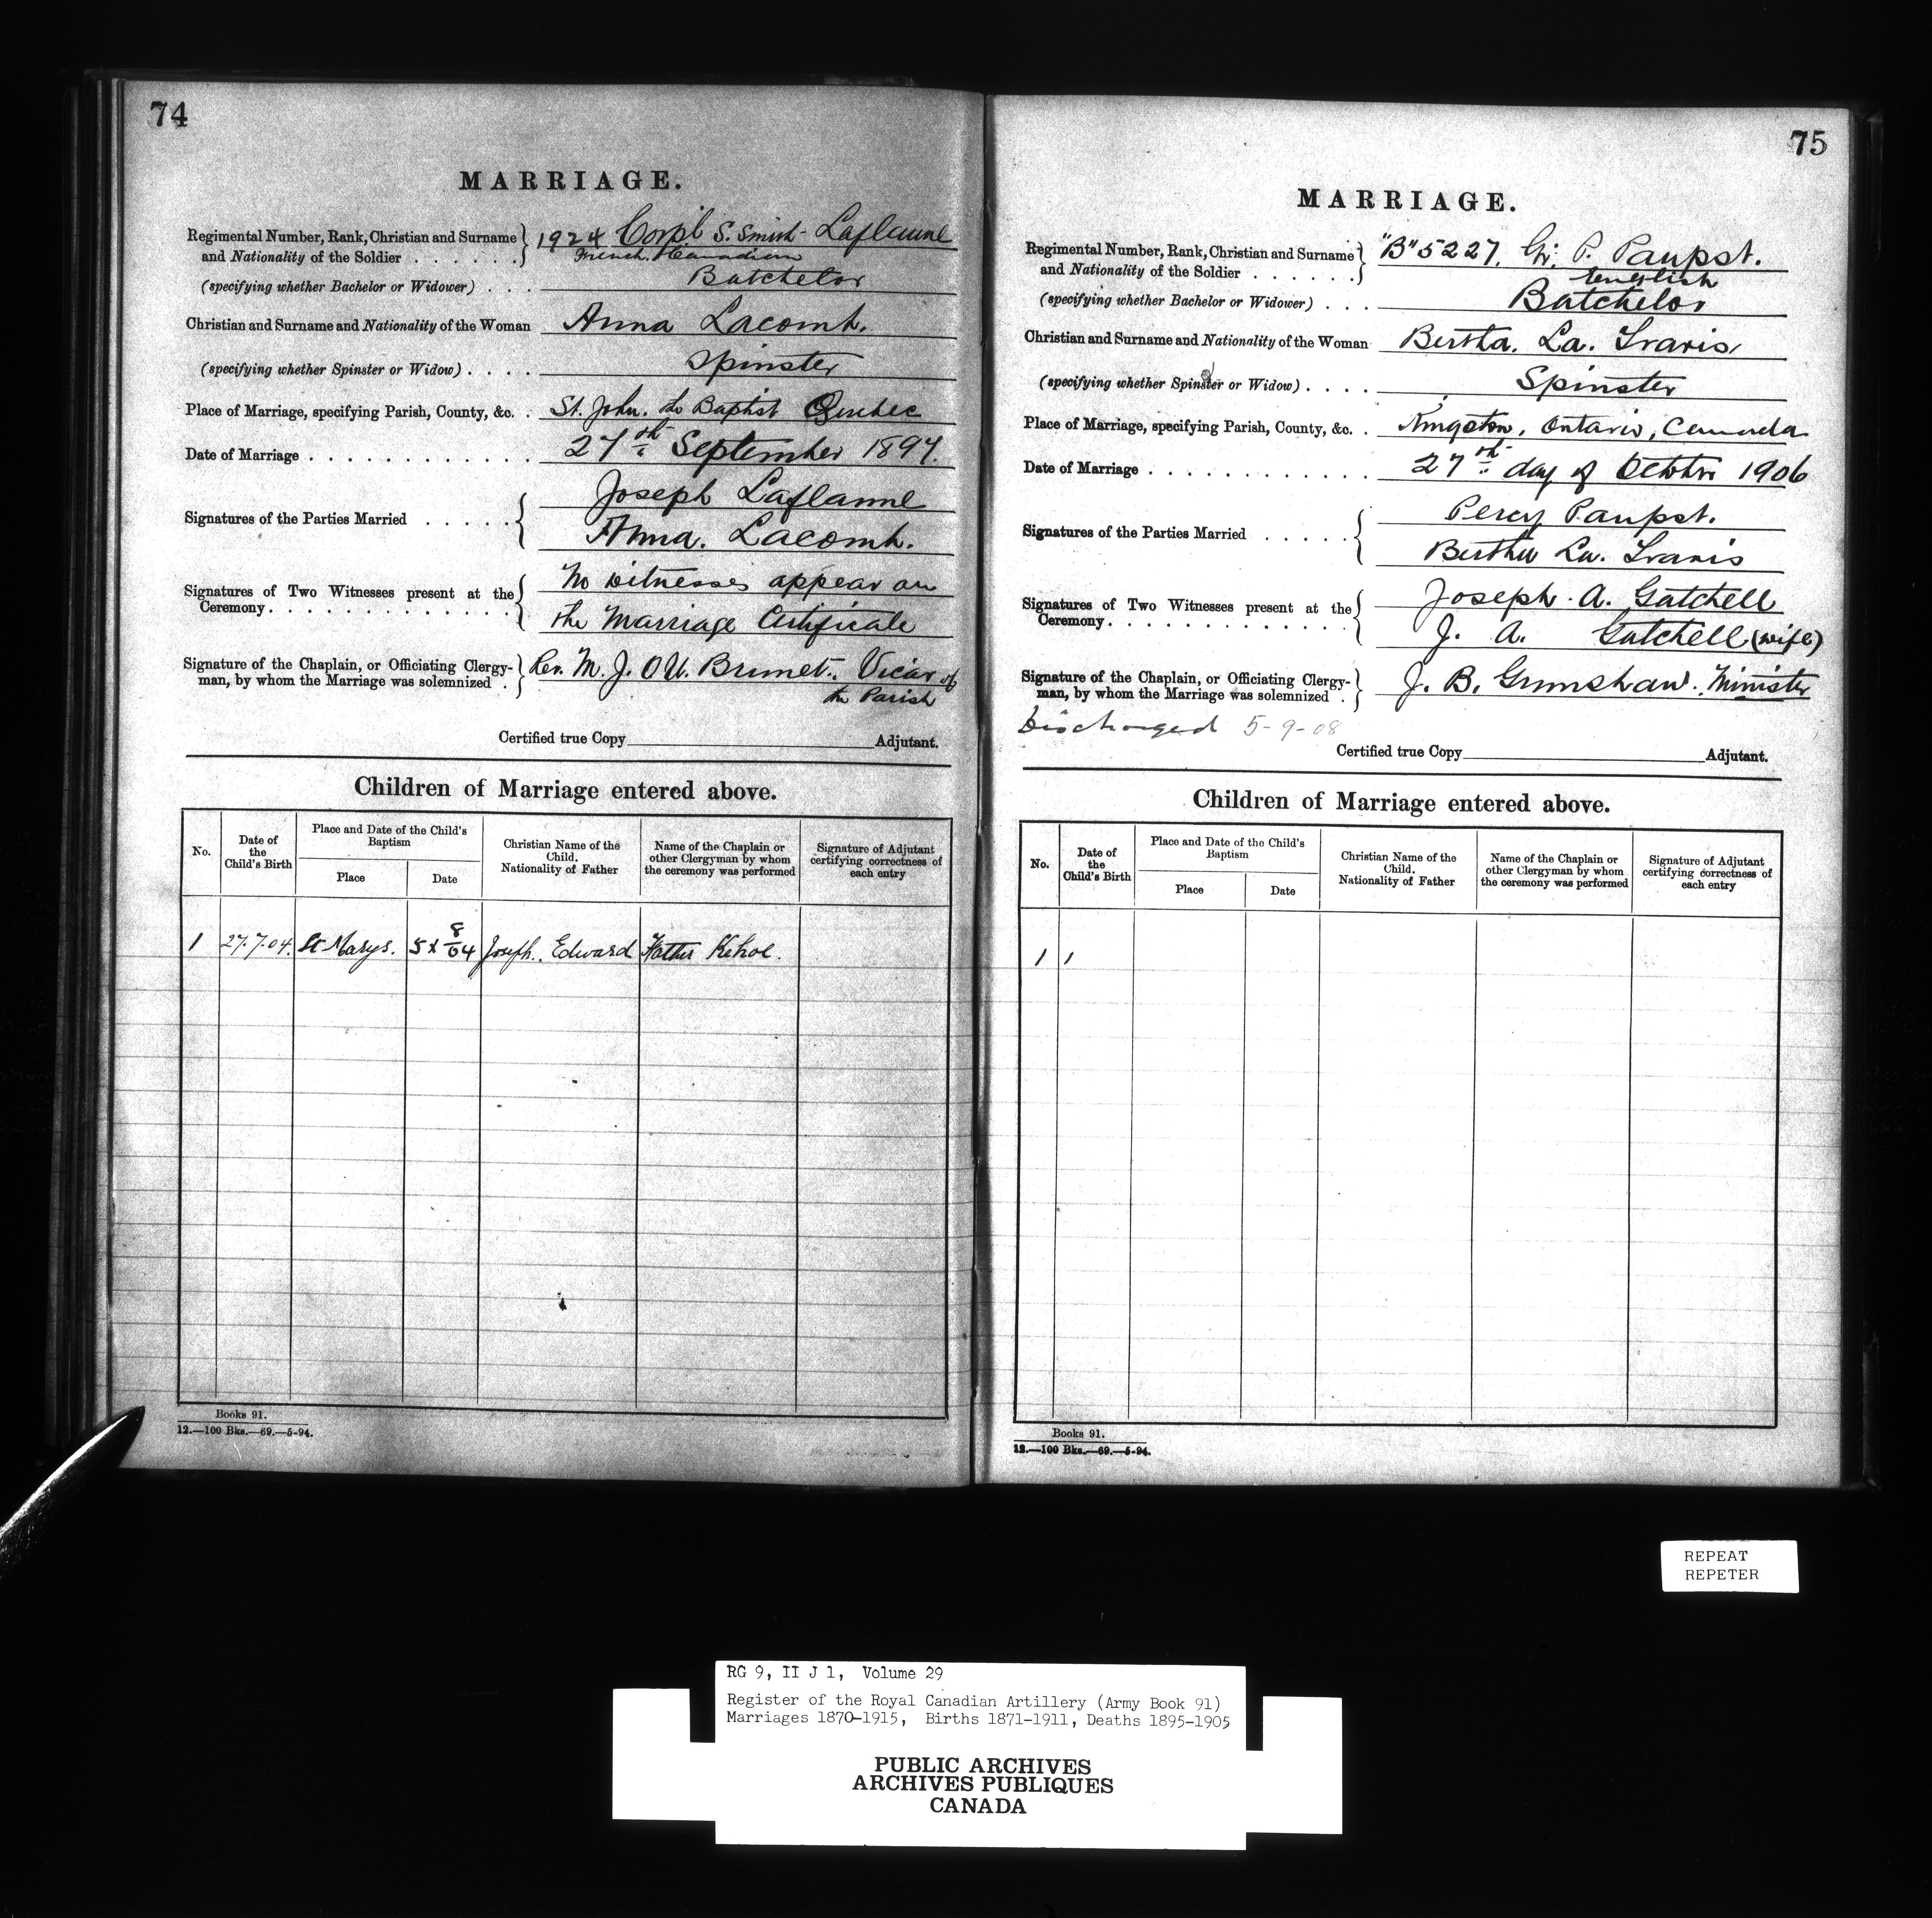 74
MARRIAGE.
Regimental Number, Rank, Christian and Surname and Nationality of the Soldier . . . . . . 1924 Corpl S. Smith - Laflamme
French Canadian
(specifying whether Bachelor or Widower) . . . Batchelor
Christian and Surname and Nationality of the Woman Anna Lacomb.
(specifying whether Spinster or Widow) . . . . Spinster
Place of Marriage, specifying Parish, County, &c. . St. John. the Baptist Quebec
Date of Marriage . . . . . . . . . . . . . 27th September 1897.
Signatures of the Parties Married . . . . . Joseph Laflamme
Anna. Lacomb.
Signatures of Two Witnesses present at the Ceremony. . . . . . . . . . . . . . No witnesses appear on
the Marriage Certificate
Signature of the Chaplain, or Officiating Clergy-
man, by whom the Marriage was solemnized . Rev. M. J. O U. Brunet. Vicar of
the Parish
Certified true Copy Adjutant.
Children of Marriage entered above.
No. Date of the Child's Birth Place and Date of the Child's Baptism Place Date Christian Name of the Child. Nationality of Father Name of the Chaplain or other Clergyman by whom the ceremony was performed Signature of Adjutant certifying correctness of each entry
1 27.7.04. St Marys. 5 8/04 Joseph. Edward Father Kehoe.
Books 91.
12.—100 Bks.—69.—5-94.
75
MARRIAGE.
Regimental Number, Rank, Christian and Surname and Nationality of the Soldier . . . . . . "B" 5227. Gr. P. Paupst.
English
(specifying whether Bachelor or Widower) . . . Batchelor
Christian and Surname and Nationality of the Woman Bertha. La. Travis
(specifying whether Spinster or Widow) . . . . Spinster
Place of Marriage, specifying Parish, County, &c. . Kingston, Ontario, Canada
Date of Marriage . . . . . . . . . . . . 27th day of October 1906
Signatures of the Parties Married . . . . . Percy Paupst.
Bertha La. Travis
Signatures of Two Witnesses present at the Ceremony. . . . . . . . . . . . . . Joseph. A. Gatchell
J. A. Gatchell (wife)
Signature of the Chaplain, or Officiating Clergy-
man, by whom the Marriage was solemnized . J. B. Grimshaw. Minister
Discharged 5-9-08
Certified true Copy Adjutant.
Children of Marriage entered above.
No. Date of the Child's Birth Place and Date of the Child's Baptism Place Date Christian Name of the Child. Nationality of Father Name of the Chaplain or other Clergyman by whom the ceremony was performed Signature of Adjutant certifying correctness of each entry
1
Books 91.
12.—100 Bks.—69.—5-94.
REPEAT
REPETER
RG 9, II J 1, Volume 29
Register of the Royal Canadian Artillery (Army Book 91)
Marriages 1870-1915, Births 1871-1911, Deaths 1895-1905
PUBLIC ARCHIVES
ARCHIVES PUBLIQUES
CANADA